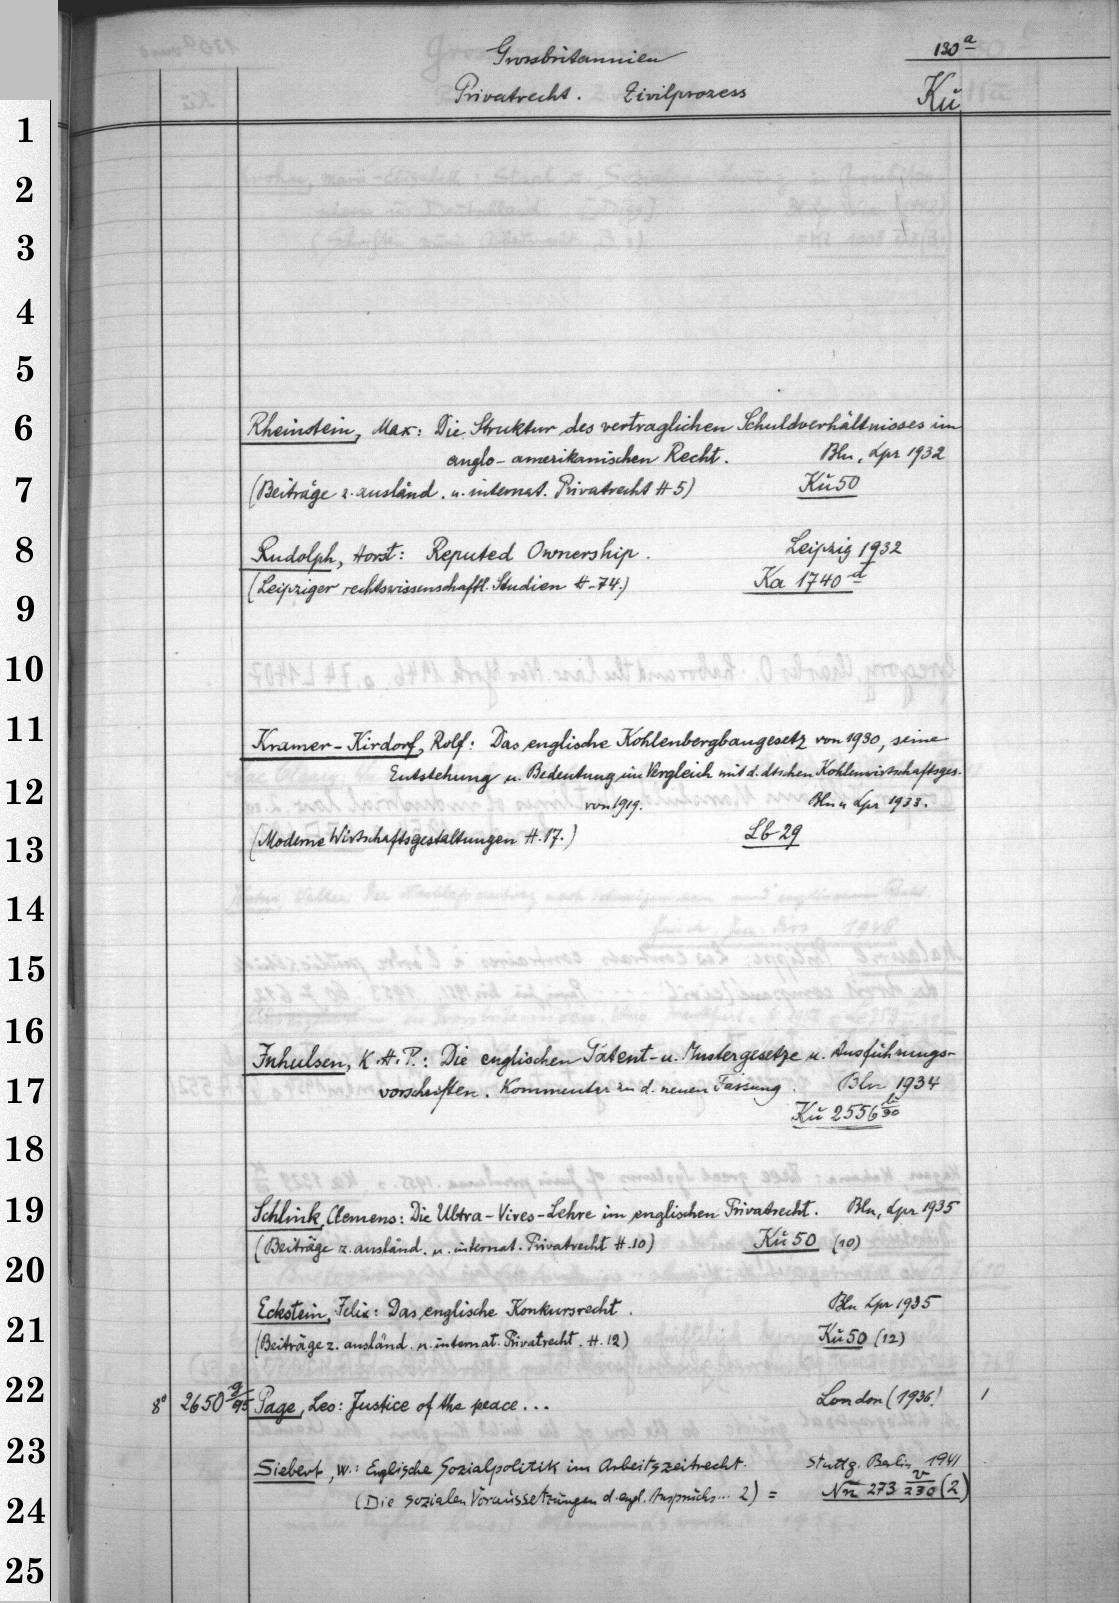 Grossbritannien 130a
Privatrecht. Zivilprozess Kü
1
2
3
4
5
6 Rheinstein, Max: Die Struktur des vertraglichen Schuldverhältnisses im
anglo-amerikanischen Recht. Bln, Lpz 1932
7 (Beiträge z. ausländ. u. internat. Privatrecht H 5) Kü 50
8 Rudolph, Horst: Reputed Ownership. Leipzig 1932
(Leipziger rechtswissenschaftl. Studien H. 74.) Ka 1740 d
9
10
11 Kramer-Kirdorf, Rolf: Das englische Kohlenbergbaugesetz von 1930, seine
Entstehung u. Bedeutung im Vergleich mit d. dtschen Kohlenwirtschaftsges.
12 von 1919. Bln u Lpz 1933.
13 (Moderne Wirtschaftsgestaltungen H. 17.) Lb 29
14
15
16 Inhulsen, K.H.P.: Die englischen Patent- u. Mustergesetze u. Ausführungs-
17 vorschriften. Kommentar zu d. neuen Fassung. Bln 1934
Kü 2556 b/30
18
19 Schlink, Clemens: Die Ultra-Vires-Lehre im englischen Privatrecht. Bln, Lpz 1935
(Beiträge z. ausländ. u. internat. Privatrecht H. 10) Kü 50 (10)
20
Eckstein, Felix: Das englische Konkursrecht. Bln Lpz 1935
21 (Beiträge z. ausländ. u. internat. Privatrecht. H. 12) Kü 50 (12)
22 8° 2650 g/95 Page, Leo: Justice of the peace... London (1936! 1
23 Siebert, W.: Englische Sozialpolitik im Arbeitszeitrecht. Stuttg. Berlin 1941
24 (Die sozialen Voraussetzungen d. engl. Anspruchs... 2) = Nn 273 v/230 (2)
25